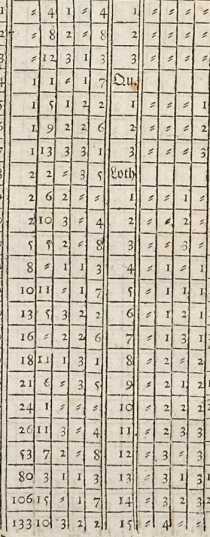 1 = 4 1 = 4 1 = = = =
2 = 8 2 = 8 2 = = = =
= 12 3 1 3 3 = = = =
4 1 1 = 1 7 Qu.
1 5 1 2 2 1 = = = =
1 9 2 2 6 2 = = = =
1 13 3 3 1 3 = = = 3
2 2 = 3 5 Loth
2 6 2 = = 1 = = 1
2 10 3 = 4 2 = = 2 =
5 5 2 = 8 3 = = 3 =
8 = 1 1 3 4 = 1 = 1
10 11 = 1 7 5 = 1 1 1
13 5 3 2 2 6 = 1 2 1
16 = 2 2 6 7 = 1 3 1
18 11 1 3 1 8 = 2 = 2
21 6 = 3 5 9 = 2 1 2
24 1 = = = 10 = 2 2 2
26 11 3 = 4 11 = 2 3 3
53 7 2 = 8 12 = 3 = 3
80 3 1 1 3 13 = 3 1 3
106 15 = 1 7 14 = 3 2 3
133 10 3 2 2 15 = 4 = =